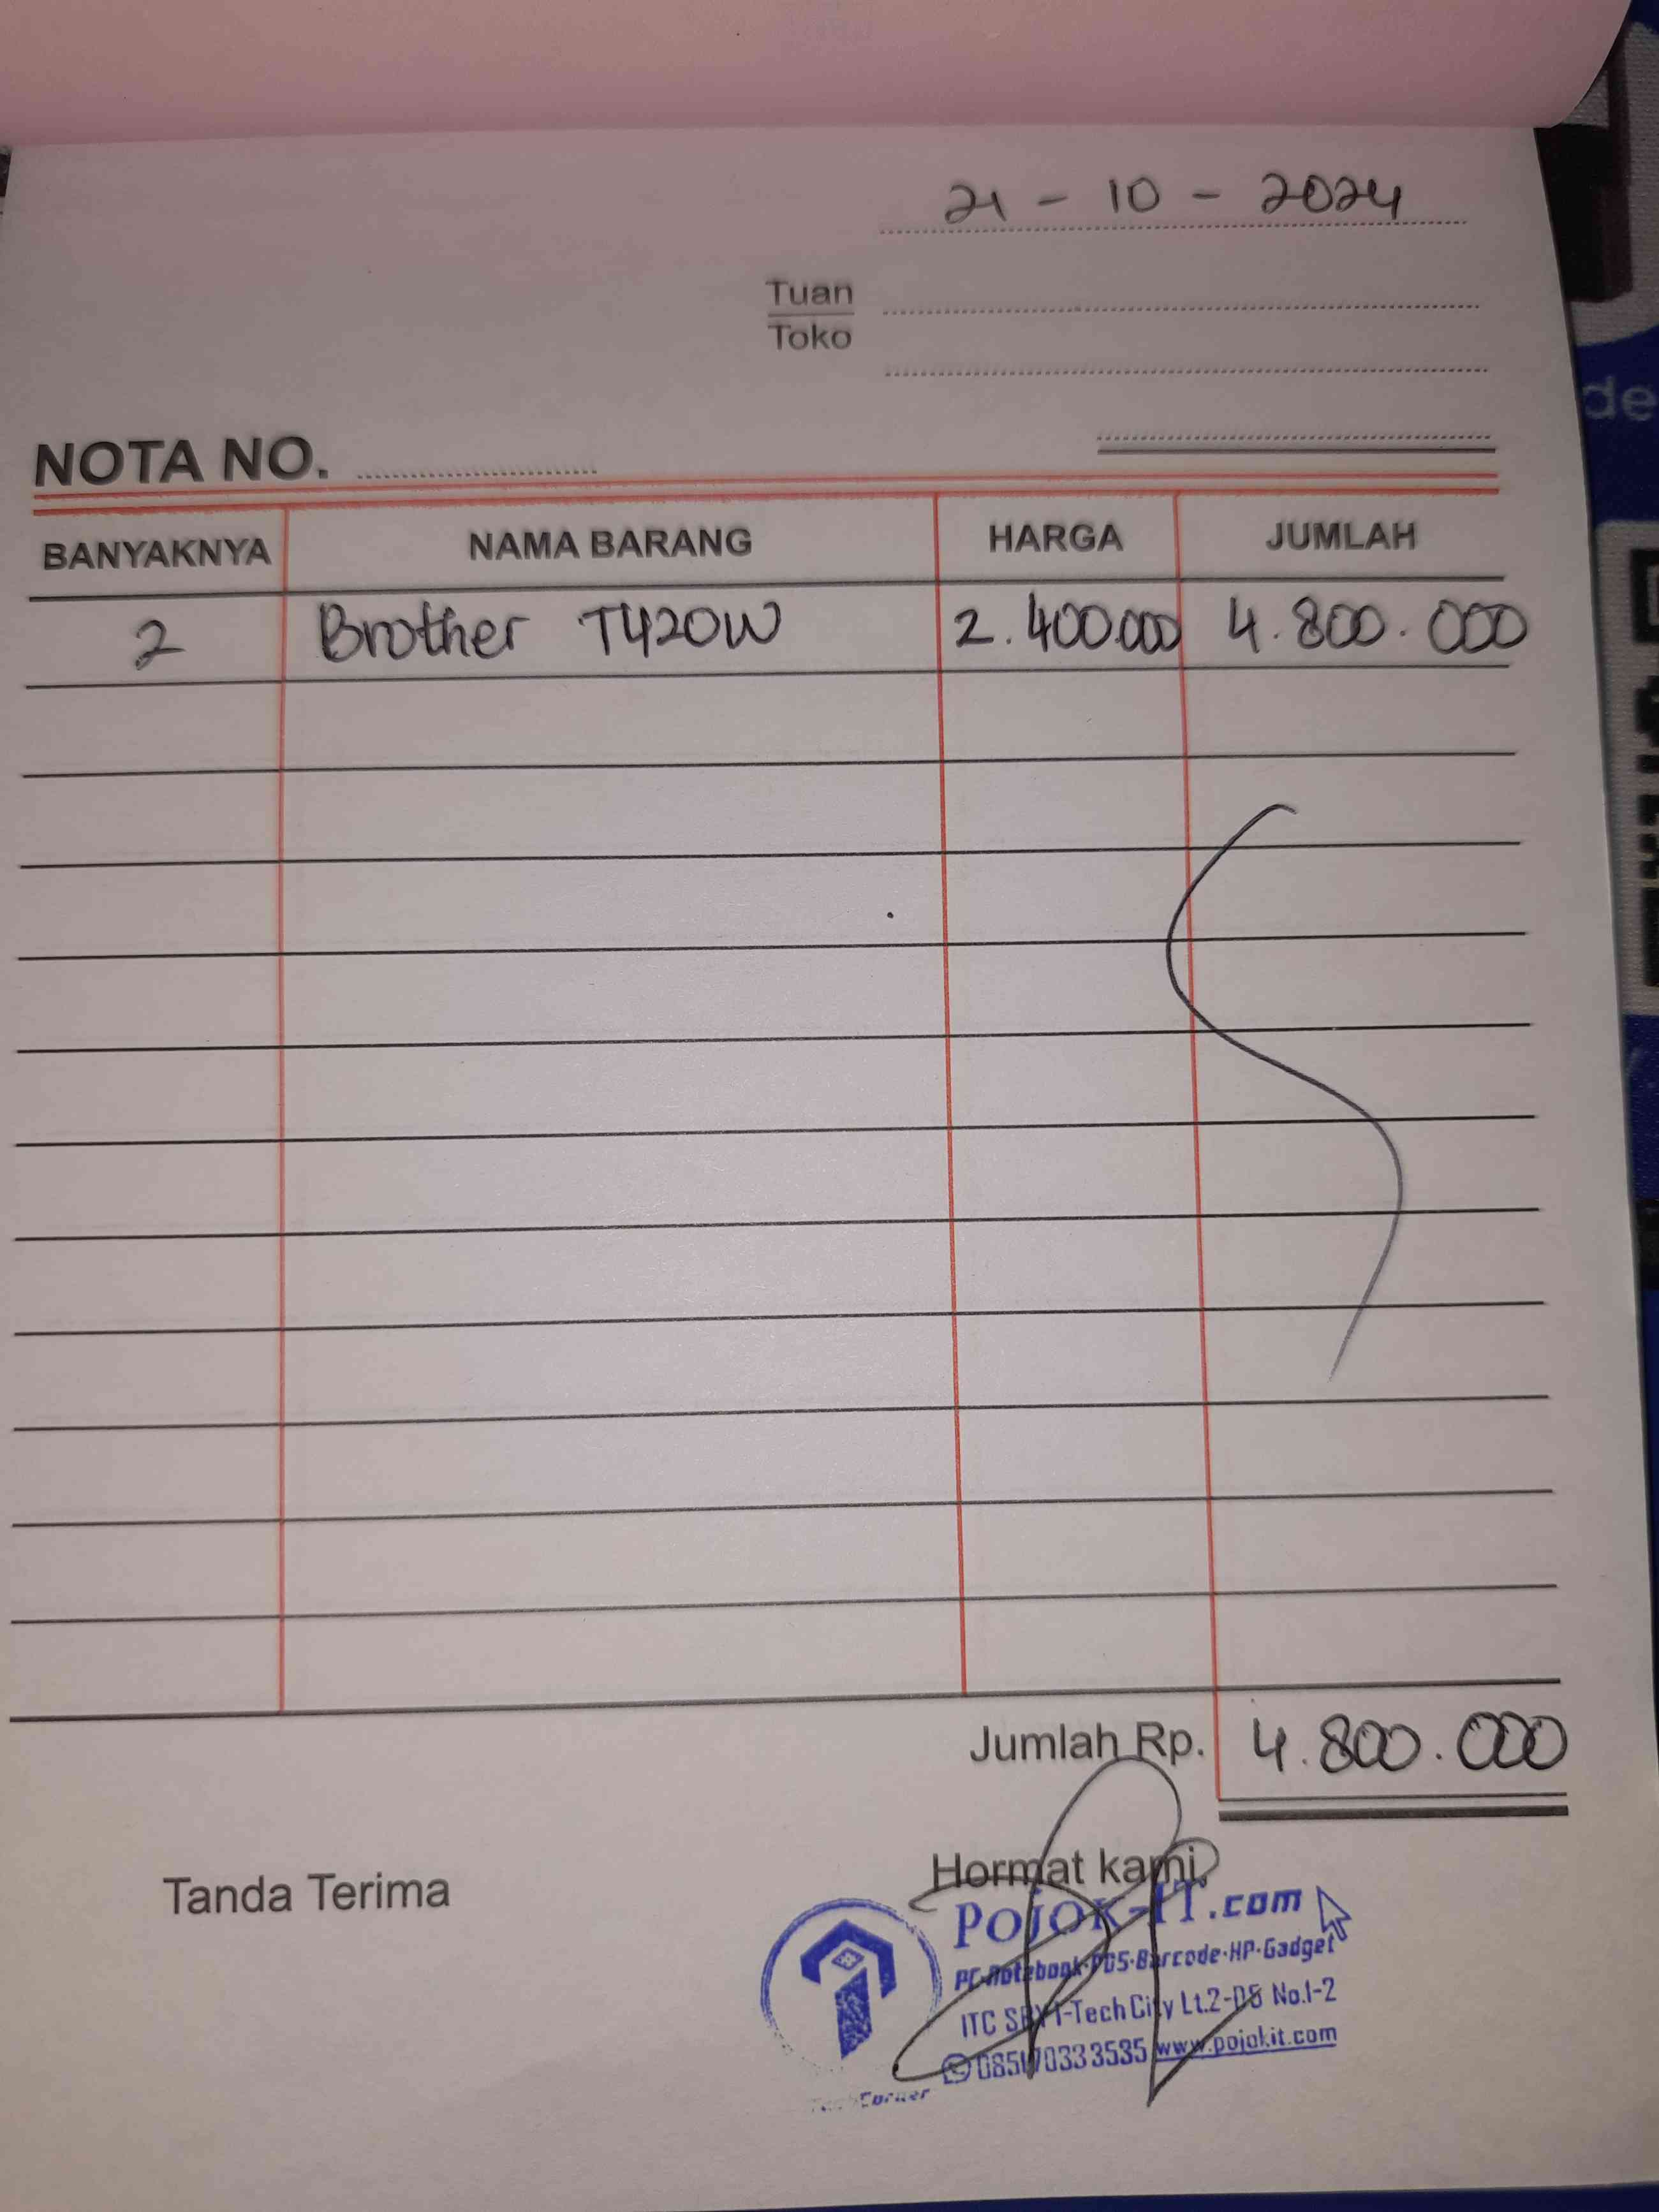 21 - 10 - 2024
Tuan
Toko
NOTA NO.
BANYAKNYA NAMA BARANG HARGA JUMLAH
2 Brother T420W 2.400.000 4.800.000
Jumlah Rp. 4.800.000
Tanda Terima
Hormat kami,
POJOK-IT.com
PC-Notebook-POS-Barcode-HP-Gadget
ITC SBY T-Tech City Lt.2-D8 No.1-2
www.pojokit.com
Corner
de